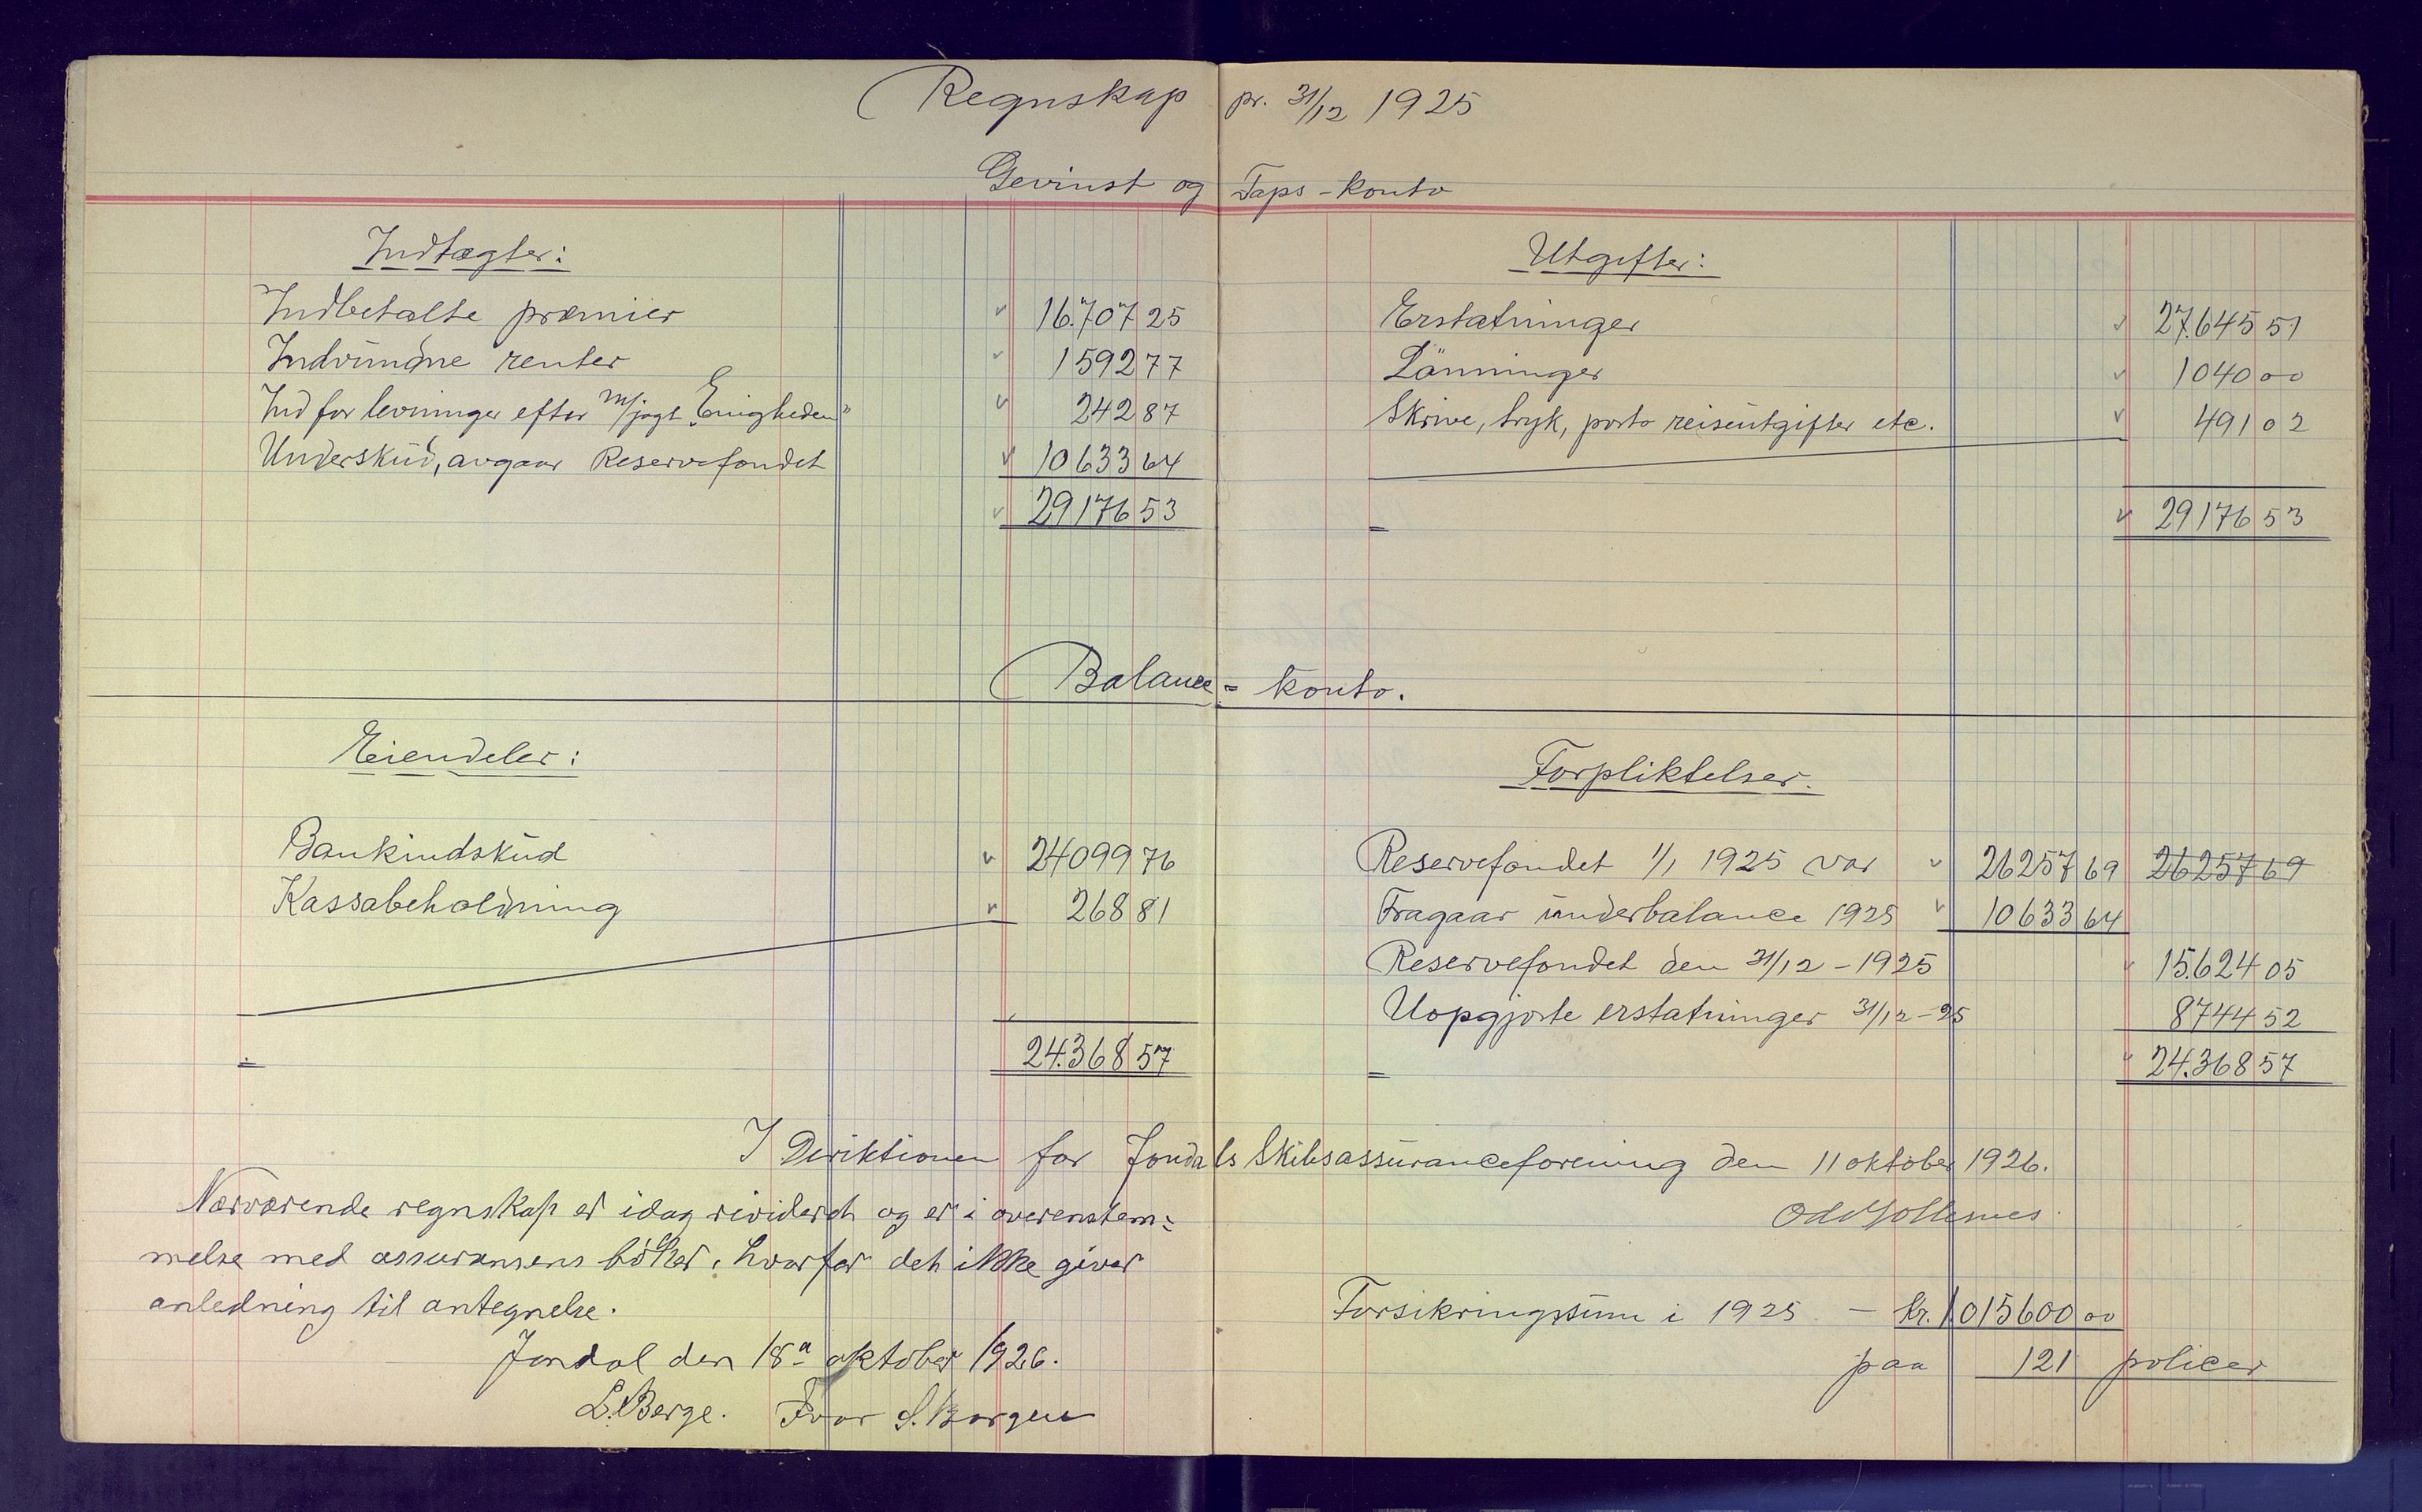 Regnskap pr. 31/12 1925
Gevinst og Taps-konto
Indtægter:
Indbetalte præmier 16.707 25
Indvundne renter 1592 77
Ind for levninger efter m/jagt „Enigheden" 242 87
Underskud, avgaar Reservefondet 10633 64
29176 53
Utgifter:
Erstatninger 27.645 51
Lönninger 1040 00
Skrive, tryk, porto reiseutgifter etc. 491 02
29176 53
Balance-konto.
Eiendeler:
Bankindskud 24099 76
Kassabeholdning 268 81
24.368 57
Forpliktelser.
Reservefondet 1/1 1925 var 26257 69 26257 69
Fragaar underbalance 1925 10633 64
Reservefondet den 31/12-1925 15.624 05
Uopgjorte erstatninger 31/12-25 8744 52
24.368 57
I Direktionen for Jondals Skibsassuranceforening den 11 oktober 1926.
Nærværende regnskap er idag revideret og er i overenstem-
melse med assuransens böker, hvorfor det ikke giver
anledning til antegnelse.
Jondal den 18de oktober 1926.
L. Berge. Ivar S. Borgen
Forsikringssum i 1925 - kr. 1.015600 00
paa 121 policer